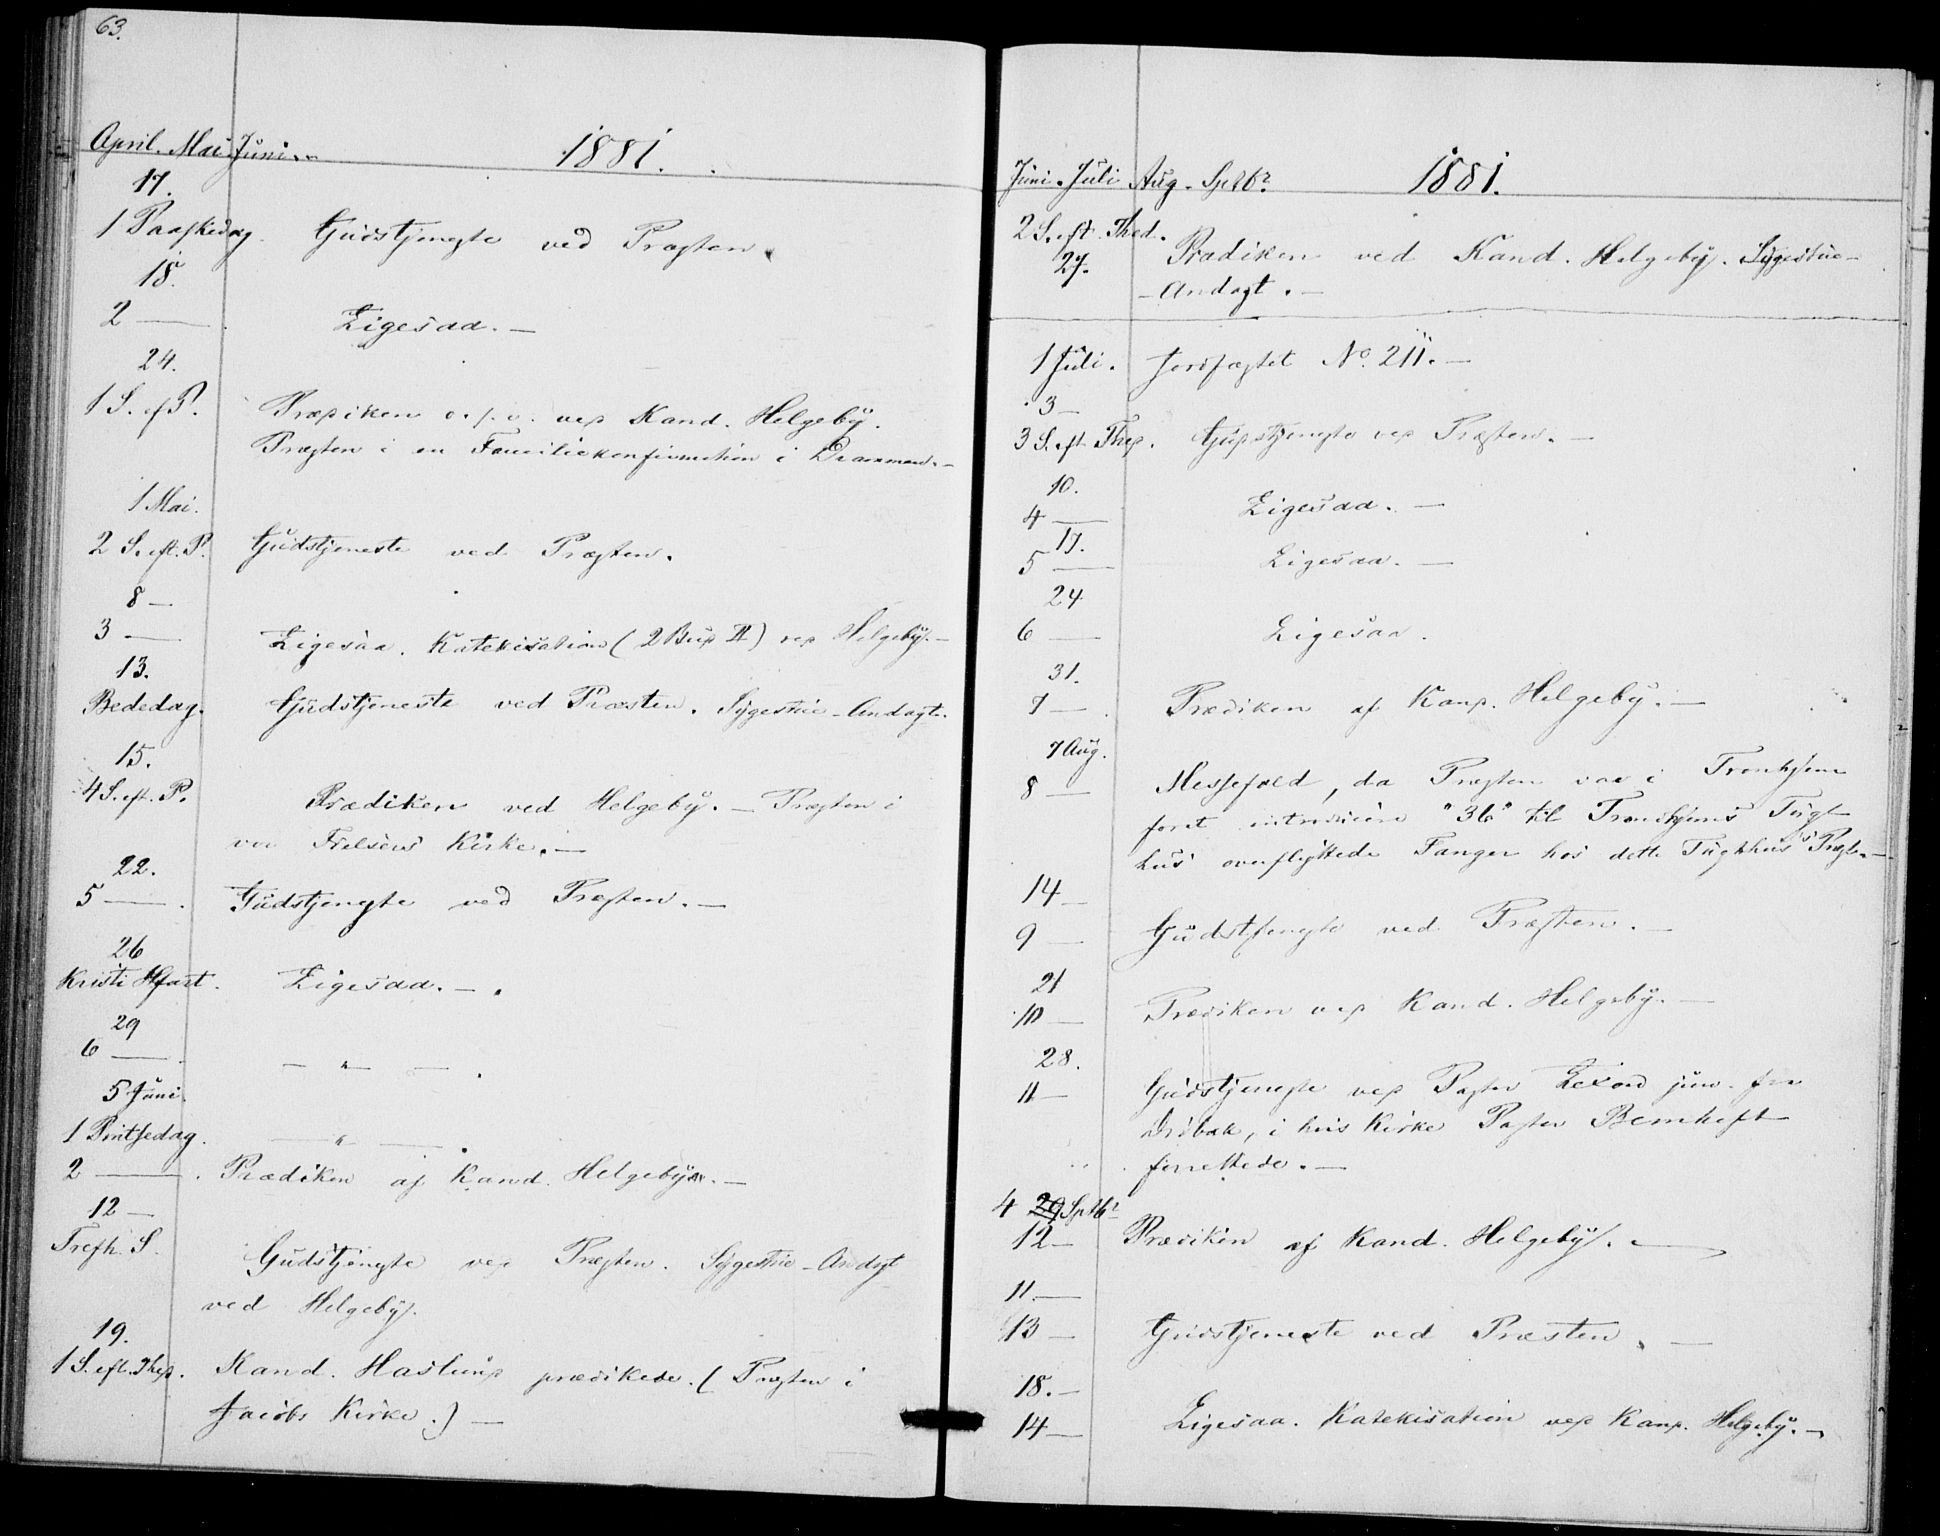 63.
April. Mai Juni. 1881.
17.
1 Paaskedag. Gudstjeneste ved Præsten.
18.
2 — Ligesaa. —
24.
1 S. ef P. Prædiken o.s.v. ved Kand. Helgeby.
Præsten i en Familiekonfirmation i Drammen. —
1 Mai.
2 S. eft. P. Gudstjeneste ved Præsten.
8 —
3 — Ligesaa. Katekisation (2 Bud II) ved Helgeby. —
13.
Bededag. Gudstjeneste ved Præsten. Sygestue-Andagt.
15.
4 S. eft. P. Prædiken ved Helgeby. — Præsten i
vor Frelsers Kirke. —
22.
5 — . Gudstjeneste ved Præsten. —
26
Kristi Hfart. Ligesaa. — .
29
6 — . — " — .
5 Juni.
1 Pintsedag. — " — .
2 — . Prædiken af Kand. Helgeby. —
12 —
Trefh. S. Gudstjeneste ved Præsten. Sygestue-Andagt
ved Helgeby.
19.
1 S. eft. Thed. Kand. Haslund prædikede. (Præsten i
Jacobs Kirke.) —
Juni. Juli Aug. Septbr. 1881.
2 S. eft. Thed.
27. Prædiken ved Kand. Helgeby. Sygestue-
-Andagt. —
1 Juli. Jordfæstet No. 211. —
3 —
3 S. eft. Thed. Gudstjeneste ved Præsten. —
10.
4 — Ligesaa. —
17.
5 — Ligesaa. —
24
6 — Ligesaa.
31.
7 — Prædiken af Kand. Helgeby. —
7 Aug.
8 — Messefald, da Præsten var i Tronhjem
for at introducere "36" til Trondhjems Tugt-
hus overflyttede Fanger hos dette Tugthus's Præst. —
14 —
9 — Gudstjeneste ved Præsten. —
21
10 — Prædiken ved Kand. Helgeby. —
28.
11 — Gudstjeneste ved Pastor Lexow jun. fra
Drøbak, i hvis Kirke Pastor Bernhoft
forrettede. —
4 29 Septbr
12 — Prædiken af Kand. Helgeby. —
11. —
13 — Gudstjeneste ved Præsten. —
18. —
14 — Ligesaa. Katekisation ved Kand. Helgeby. —